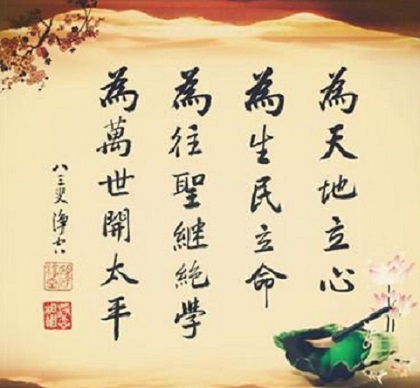 為天地立心
為生民立命
為往聖繼絕學
為萬世開太平
八三叟 淨空